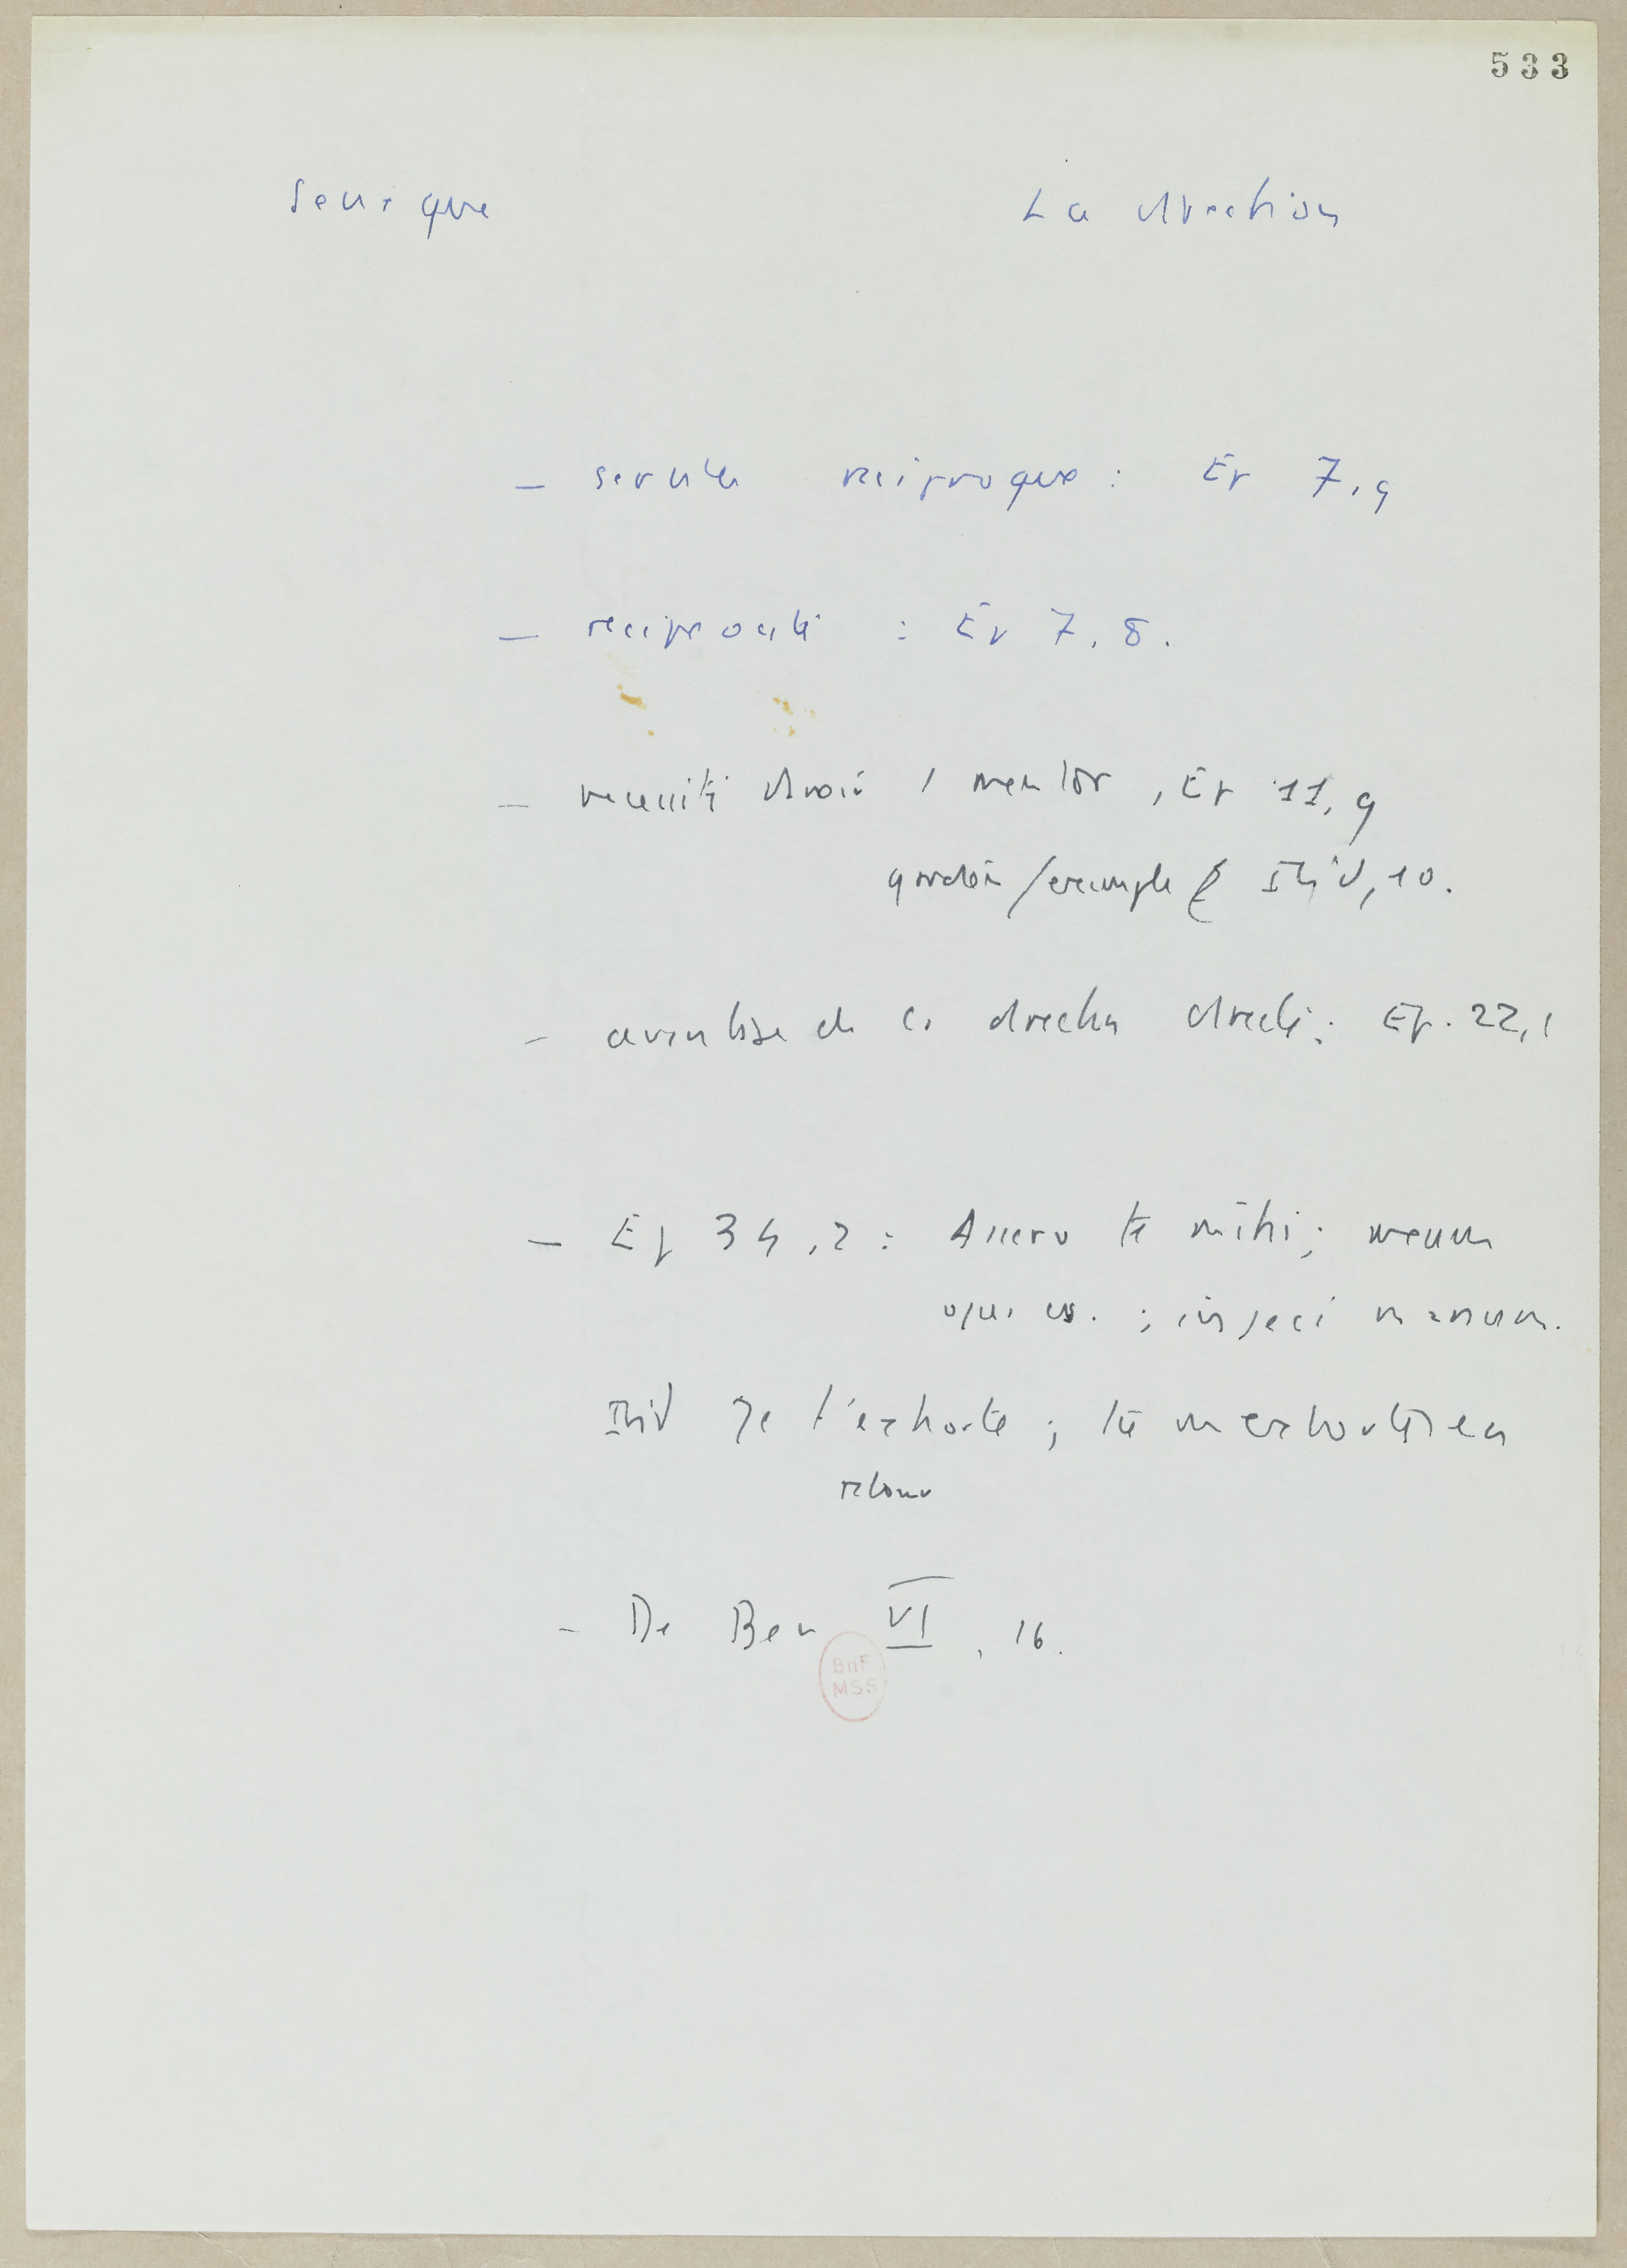 533
Seneque La direction
– service reciproque : Ep 7, 9
– reciprocité : Ep 7, 8.
– necessité d'avoir 1 mentor, Ep 11, 9
gardien / exemple Ibid, 10.
– avantage de la direction directe : Ep. 22, 1
– Ep 34, 2 : Assero te mihi ; meum
opus es. ; injeci manum.
Ibid Je t'exhorte ; tu m'exhortes en
retour
– De Ben VI, 16.
BnF
MSS